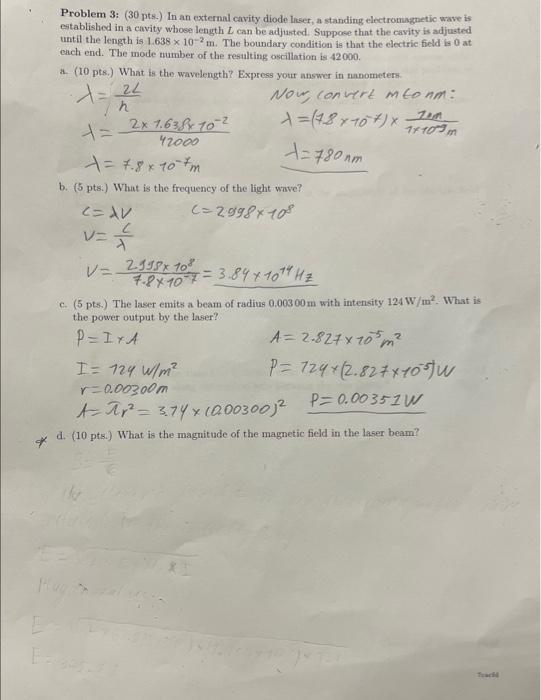 Problem 3: (30 pts.) In an external cavity diode laser, a standing electromagnetic wave is
established in a cavity whose length L can be adjusted. Suppose that the cavity is adjusted
until the length is 1.638 × 10⁻² m. The boundary condition is that the electric field is 0 at
each end. The mode number of the resulting oscillation is 42 000.
a. (10 pts.) What is the wavelength? Express your answer in nanometers.
λ = 2L / n
λ = 2 × 1.638 × 10⁻² / 42000
λ = 7.8 × 10⁻⁷ m
Now, convert m to nm:
λ = (7.8 × 10⁻⁷) × 1nm / 1×10⁻⁹ m
λ = 780 nm
b. (5 pts.) What is the frequency of the light wave?
c = λν
c = 2.998 × 10⁸
ν = c / λ
ν = 2.998 × 10⁸ / 7.8 × 10⁻⁷ = 3.84 × 10¹⁴ Hz
c. (5 pts.) The laser emits a beam of radius 0.003 00 m with intensity 124 W/m². What is
the power output by the laser?
P = I × A
I = 124 W/m²
r = 0.00300m
A = πr² = 3.14 × (0.00300)²
A = 2.827 × 10⁻⁵ m²
P = 124 × (2.827 × 10⁻⁵) W
P = 0.00351 W
* d. (10 pts.) What is the magnitude of the magnetic field in the laser beam?